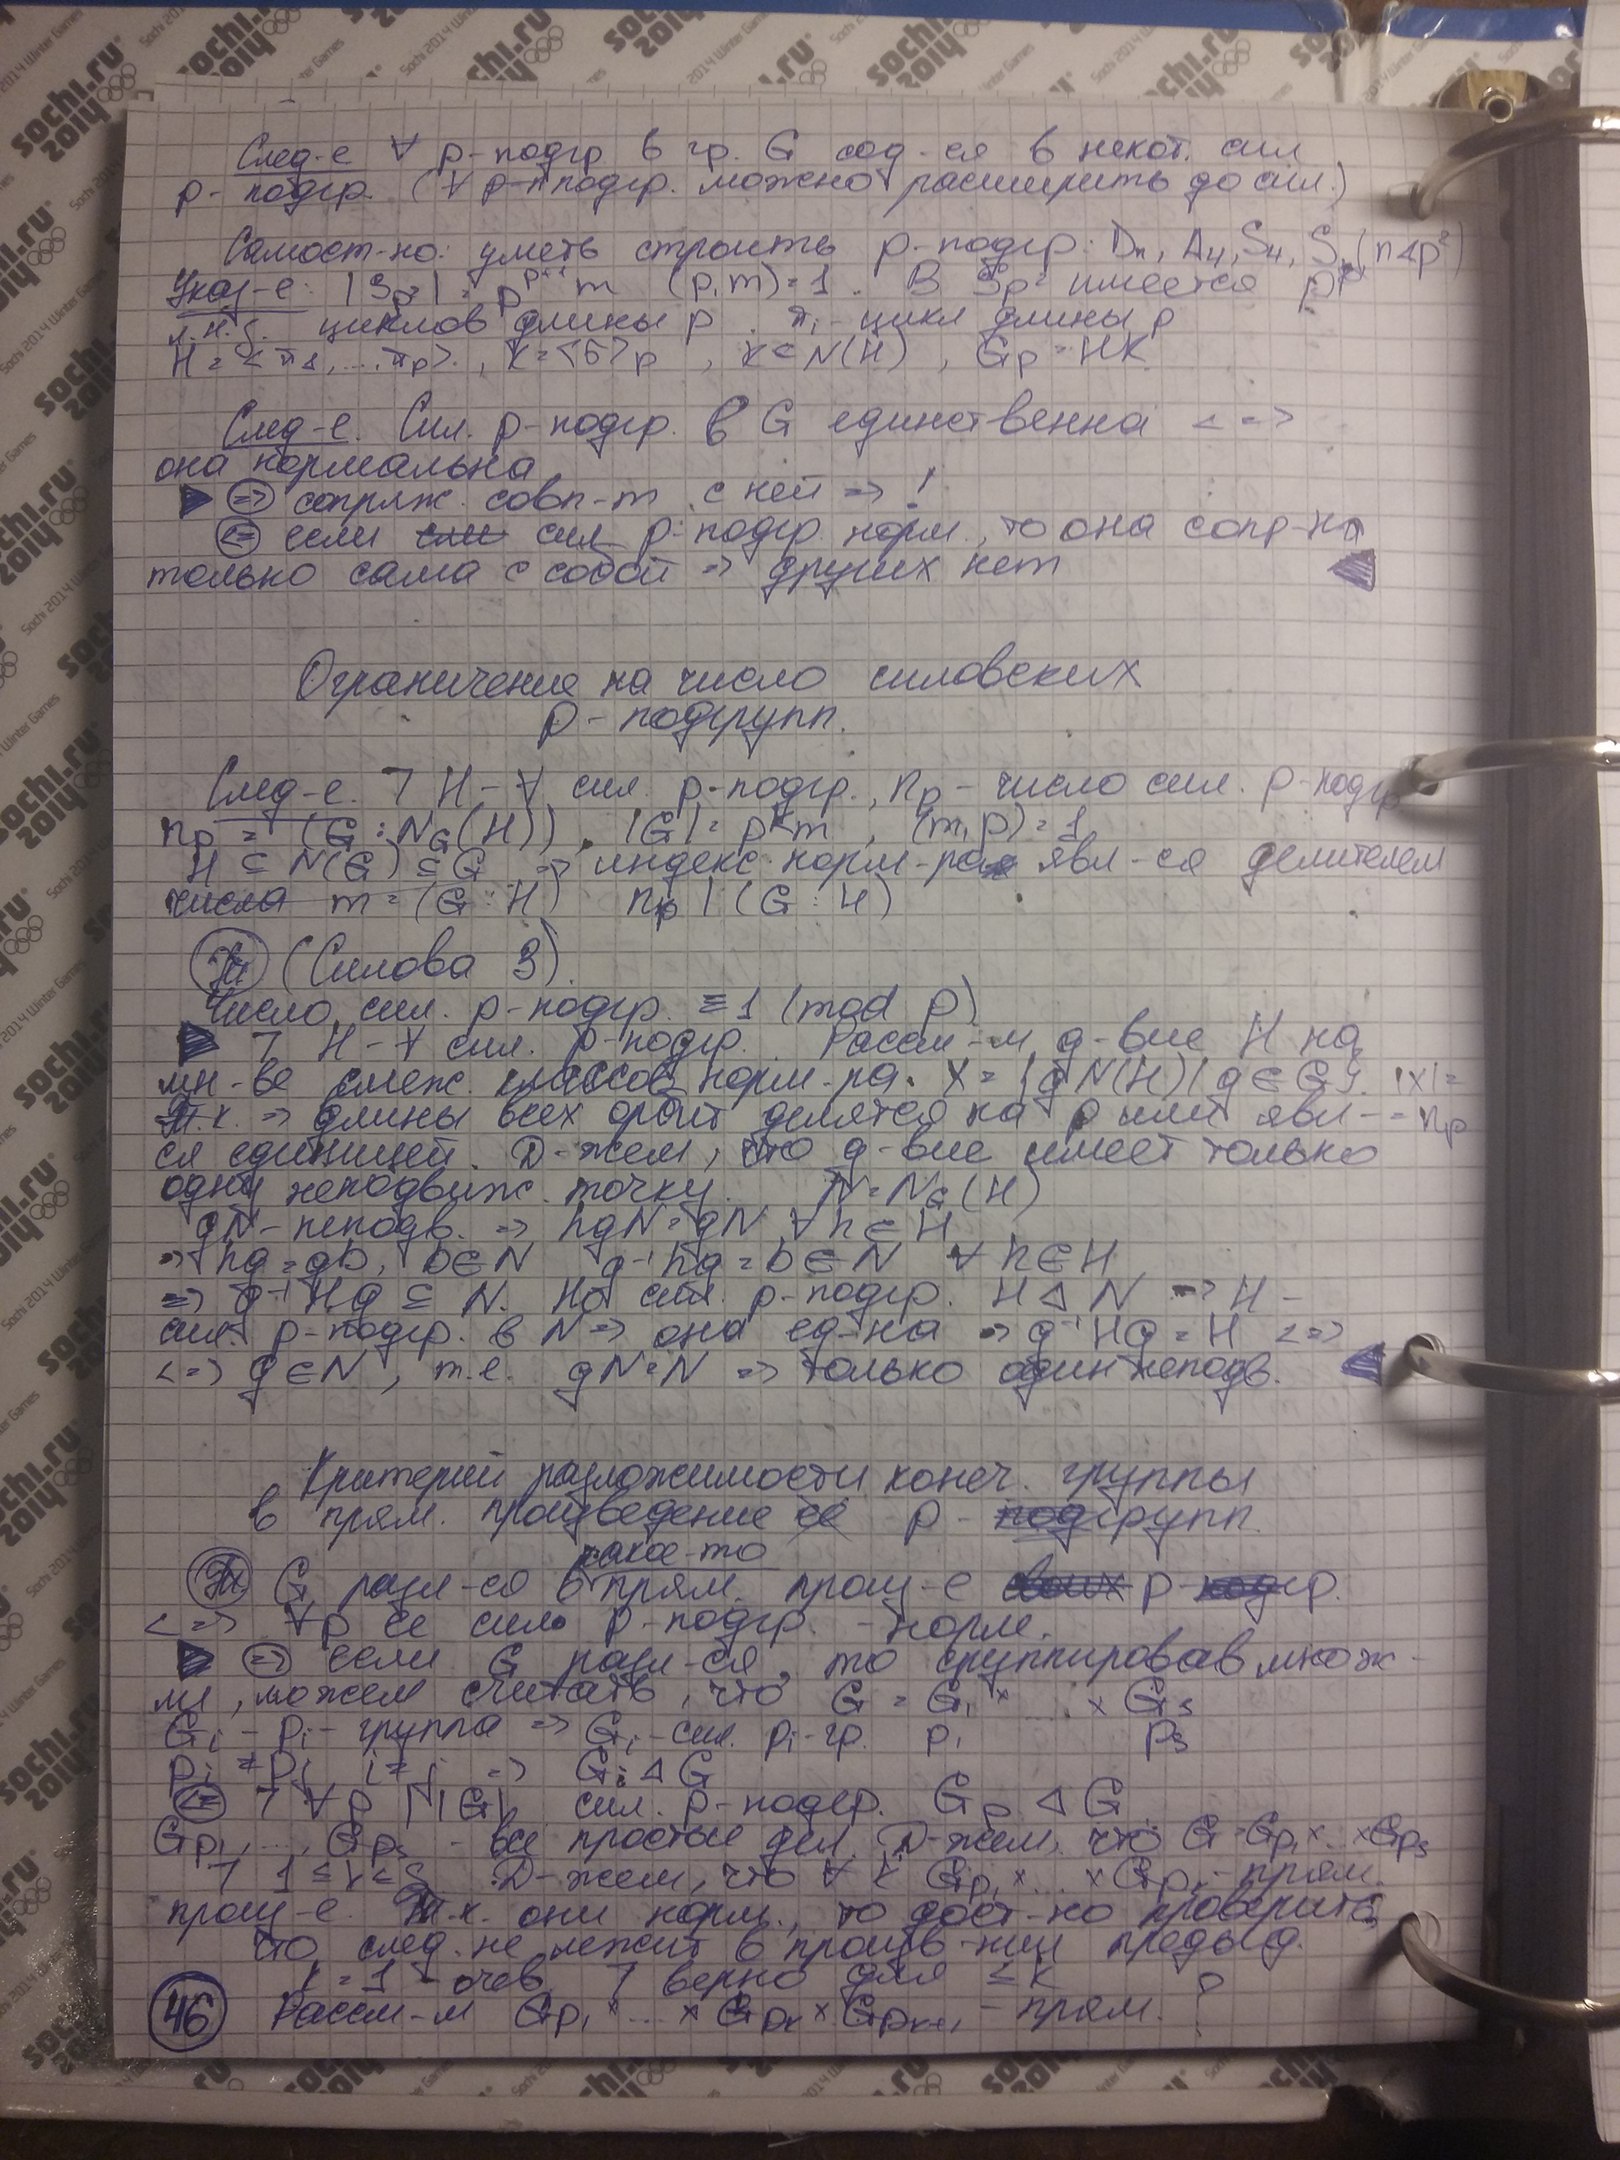 След-е ∀ p-подгр в гр. G сод-ся в некот. сил
p-подгр. (∀ p-подгр. можно расширить до сил.)
Самост-но: уметь строить p-подгр: Dn, A4, S4, Sn (n<p²)
Указ-е: |Sp²| = p^(p+1) m (p,m)=1. В Sp² имеется p
л.н.з. циклов длины p. πi - цикл длины p
H = <π1, ..., πp>, K=<σ>p, K⊂N(H), Gp=HK
След-е. Сил. p-подгр. в G единственна <=>
она нормальна
▶ (=>) сопряж. совп-т с ней => !
(<=) если сил p-подгр. норм., то она сопр-на
только сама с собой => других нет ◀
Ограничение на число силовских
p-подгрупп.
След-е. ⅂ H - ∀ сил. p-подгр., np - число сил. p-подгр
np = (G : NG(H)), |G| = p^k m, (m,p)=1
H ⊆ N(G) ⊆ G => индекс норм-ра явл-ся делителем
числа m = (G : H) np | (G : H)
Th (Силова 3).
Число сил. p-подгр. ≡ 1 (mod p)
▶ ⅂ H - ∀ сил. p-подгр. Рассм-м д-вие H на
мн-ве смеж. классов норм-ра. X = {gN(H) | g∈G}. |X| =
Т.к. => длины всех орбит делятся на p или явл- = np
ся единицей. Д-жем, что д-вие имеет только
одну неподвиж. точку. N = NG(H)
gN - неподв. => hgN = gN ∀ h∈H
=> hg = gb, b∈N g⁻¹hg = b∈N ∀ h∈H
=> g⁻¹Hg ⊆ N. Но сил. p-подгр. H ⊲ N => H -
сил. p-подгр. в N => она ед-на => g⁻¹Hg = H <=>
<=> g∈N, т.е. gN=N => только один неподв. ◀
Критерий разложимости конеч. группы
в прям. произведение её p-групп.
какое-то
Th G разл-ся в прям. произ-е p-гр.
<=> ∀p её сил. p-подгр. - норм.
▶ (=>) если G разл-ся, то сгруппировав множ-
ли, можем считать, что G = G1 × ... × Gs
Gi - pi-группа => Gi - сил. pi-гр. p1 ps
pi ≠ pj i≠j => Gi ⊲ G
(<=) ⅂ ∀p | |G| сил. p-подгр. Gp ⊲ G
Gp1, ..., Gps - все простые дел. Д-жем, что G = Gp1 × ... × Gps
⅂ 1 ≤ k ≤ s Д-жем, что ∀ k Gp1 × ... × Gpk - прям.
произ-е. Т.к. они норм., то дост-но проверить,
что след. не лежит в произв-нии предыд.
k=1 - очев. ⅂ верно для ≤ k
46 Рассм-м Gp1 × ... × Gpk × Gpk+1 - прям. ?
sochi.ru
2014
Sochi 2014 Winter Games